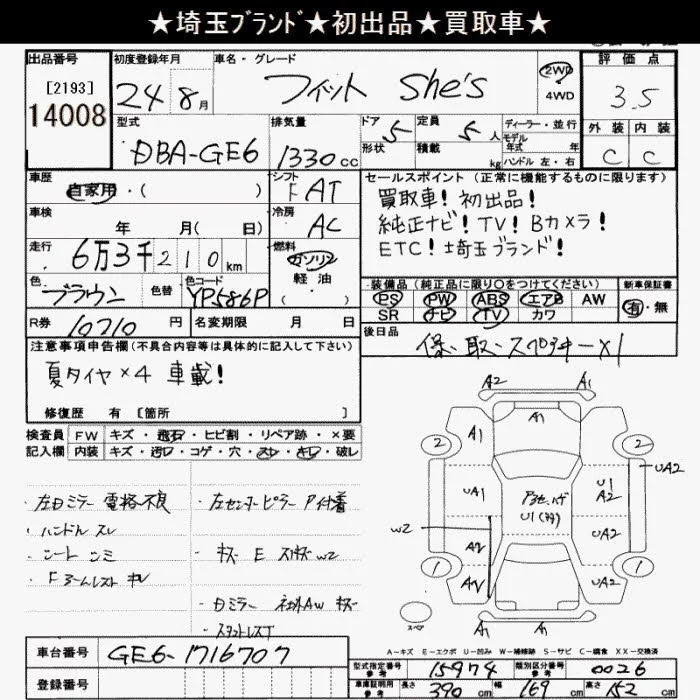 ★埼玉ﾌﾞﾗﾝﾄﾞ★初出品★買取車★
出品番号 初度登録年月 車名・グレード 評価点
[2193]
14008
24年8月 フィット She's 2WD 4WD 3.5
型式 排気量 ドア 定員 ディーラー・並行 外装 内装
DBA-GE6 1330cc 5 5人 モデル年式 年 C C
形状 積載 kg ハンドル 左・右
車歴 シフト セールスポイント (正常に機能するものに限ります)
自家用・( ) F AT 買取車! 初出品!
車検 冷房 純正ナビ! TV! Bカメラ!
年 月( 日) AC ETC! 埼玉ブランド!
走行 6万3千210km 燃料 ガソリン 軽油
装備品 (純正品に限り○をつけてください) 新車保証書
色 ブラウン 色替 色コード YP586P
PS PW ABS エアB AW 有・無
SR ナビ TV カワ
R券 10710円 名変期限 月 日 後日品
保・取・スペアキーX1
注意事項申告欄 (不具合内容等は具体的に記入して下さい)
夏タイヤ×4 車載!
修復歴 有 [箇所 ]
検査員 FW キズ・飛石・ヒビ割・リペア跡・×要
記入欄 内装 キズ・汚レ・コゲ・穴・スレ・キレ・破レ
A2 A1
A1
A1
2 2
UA2
UA1
U1
A2
W2
UA2
1 1
UA2
A1 A1
左右ミラー 電格不良
左センターピラー 付着
ハンドル スレ
シート シミ
キズ E W2
Fアームレスト キレ
スペア
A-キズ E-エクボ U-凹み W-補修跡 S-サビ C-腐食 XX-交換済
車台番号 GE6-1716707
型式指定番号 参考 15974 類別区分番号 参考 0026
登録番号
車庫証明用 参考 長さ 390cm 幅 169cm 高さ 152cm